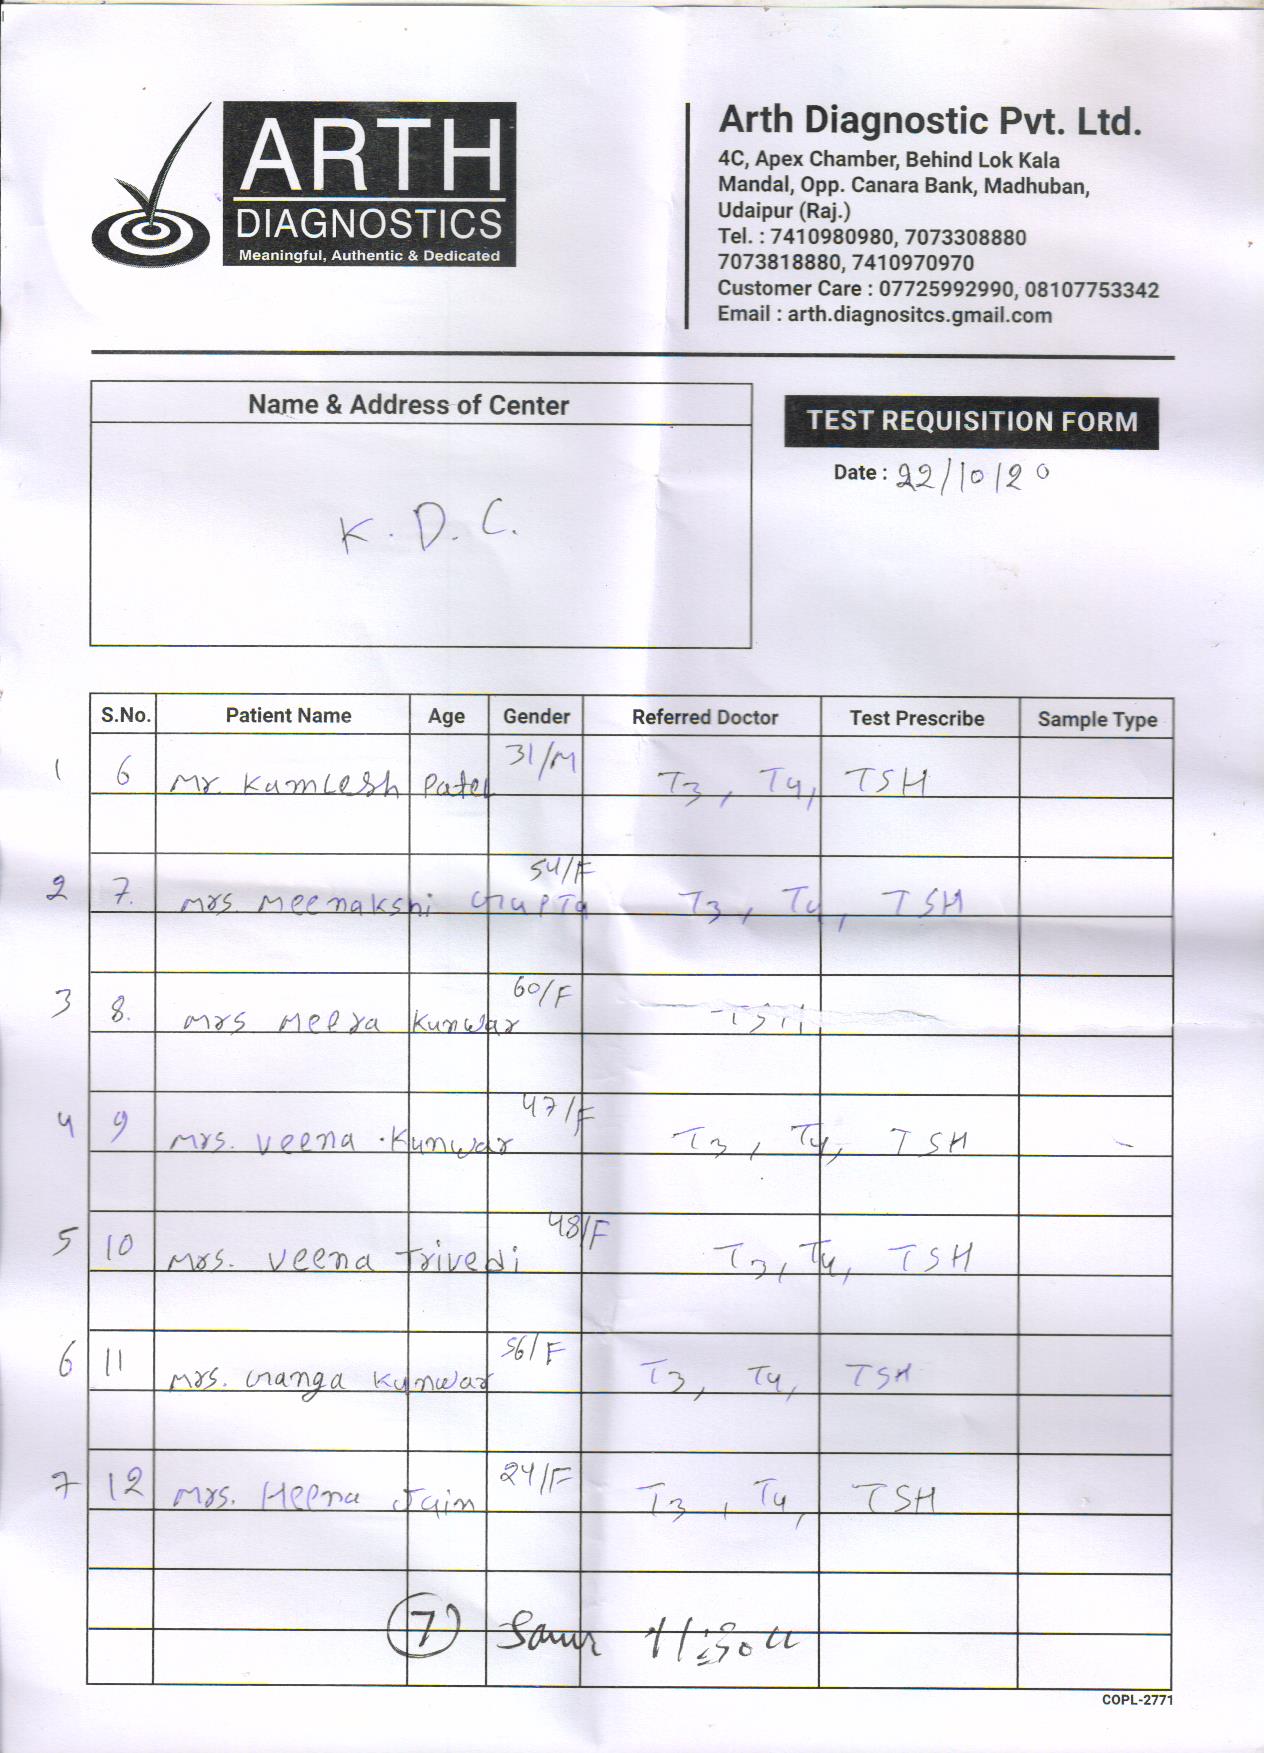 ARTH
DIAGNOSTICS
Meaningful, Authentic & Dedicated
Arth Diagnostic Pvt. Ltd.
4C, Apex Chamber, Behind Lok Kala
Mandal, Opp. Canara Bank, Madhuban,
Udaipur (Raj.)
Tel. : 7410980980, 7073308880
7073818880, 7410970970
Customer Care : 07725992990, 08107753342
Email : arth.diagnositcs.gmail.com
Name & Address of Center
K. D. C.
TEST REQUISITION FORM
Date : 22/10/20
S.No. Patient Name Age Gender Referred Doctor Test Prescribe Sample Type
1 6 Mr. Kamlesh Patel 31/M T3, T4, TSH
2 7. Mrs. Meenakshi Gupta 54/F T3, T4, TSH
3 8. Mrs Meera Kunwar 60/F TSH
4 9 Mrs. Veena Kunwar 47/F T3, T4, TSH
5 10 Mrs. Veena Trivedi 48/F T3, T4, TSH
6 11 Mrs. Ganga Kunwar 56/F T3, T4, TSH
7 12 Mrs. Heena Jain 24/F T3, T4, TSH
7
COPL-2771